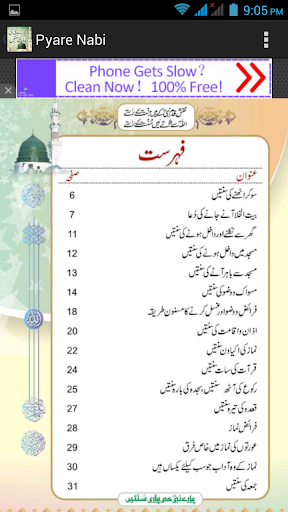 9:05 PM
Pyare Nabi
Phone Gets Slow?
Clean Now! 100% Free!
نقشِ قدم نبی کے ہیں جنت کے راستے
اللہ سے ملاتے ہیں سنت کے راستے
فہرست
عنوان صفحہ
سو کر اٹھنے کی سنتیں 6
بیت الخلا آنے جانے کی دُعا 7
گھر سے نکلنے اور داخل ہونے کی سنتیں 9
مسجد میں داخل ہونے کی سنتیں 12
مسجد سے باہر آنے کی سنتیں 13
مسواک و وضو کی سنتیں 14
فرائض وضو اور غسل کرنے کا مسنون طریقہ 18
اذان و اقامت کی سنتیں 20
نماز کی اکیاون سنتیں 22
قرأت کی سات سنتیں 24
رکوع کی آٹھ سنتیں، سجدہ کی بارہ سنتیں 25
قعدہ کی تیرہ سنتیں 27
فرائض نماز 28
عورتوں کی نماز میں خاص فرق 29
نماز کے وہ آداب جو سب کیلئے یکساں ہیں 30
جمعہ کی سنتیں 31
پیارے نبی کی پیاری سنتیں